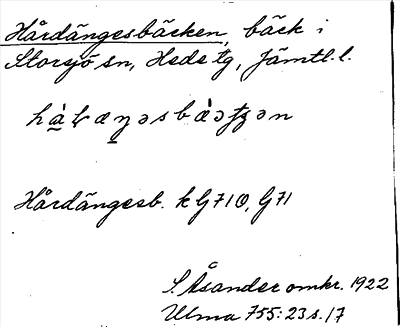 Hårdängesbäcken, bäck i
Storsjö sn, Hede tg, Jämtl. l.
Hårdängesb. k G710, G71
S. Åsander omkr. 1922
Ulma 755:23 s. 17